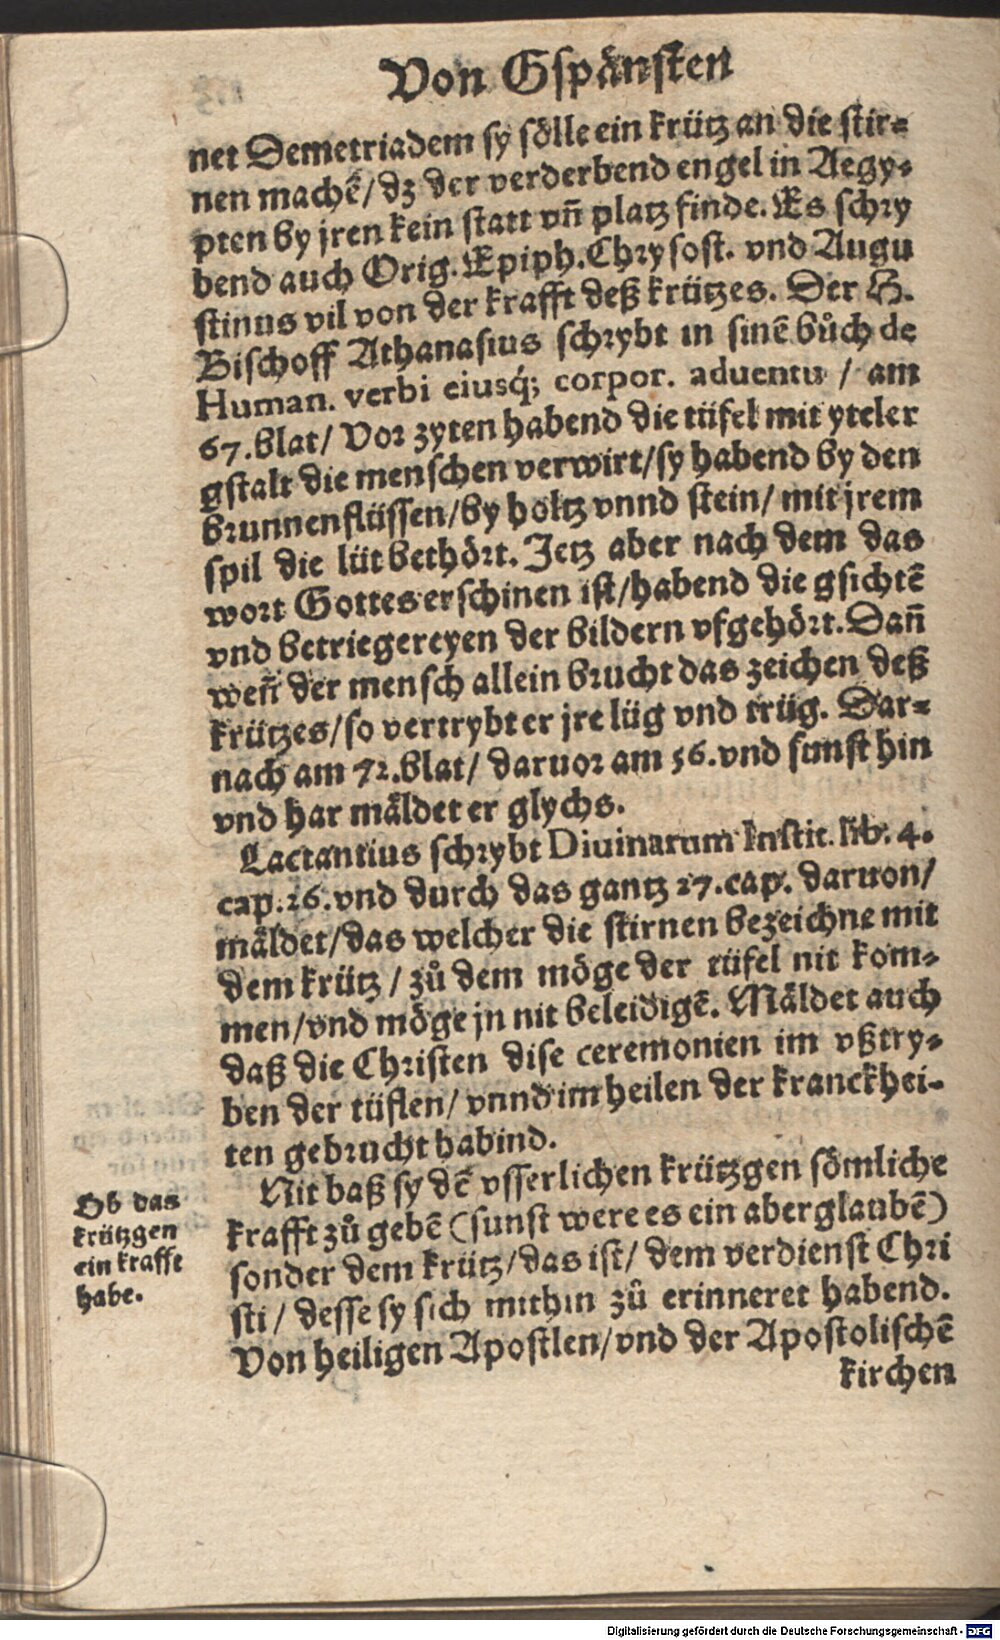 Von Gspänsten
net Demetriadem sy sölle ein krütz an die stir=
nen machē/ dz der verderbend engel in Aegy=
pten by jren kein statt vn̄ platz finde. Es schry
bend auch Orig. Epiph. Chrysost. vnd Augu
stinus vil von der krafft deß krützes. Der H.
Bischoff Athanasius schrybt in sinē bůch de
Human. verbi eiusq́; corpor. aduentu / am
67. blat/ Vor zyten habend die tüfel mit yteler
gstalt die menschen verwirt/ sy habend by den
brunnen flüssen/ by holtz vnnd stein/ mit jrem
spil die lüt bethört. Jetz aber nach dem das
wort Gottes erschinen ist/ habend die gsichtē
vnd betriegereyen der bildern vfgehört. Dan̄
wen̄ der mensch allein brucht das zeichen deß
krützes/ so vertrybt er jre lüg vnd trüg. Dar=
nach am 72. blat/ daruor am 56. vnd sunst hin
vnd har mäldet er glychs.
Lactantius schrybt Diuinarum Instit. lib. 4.
cap. 26. vnd durch das gantz 27. cap. daruon/
mäldet/ das welcher die stirnen bezeichne mit
dem krütz / zů dem möge der tüfel nit kom=
men/ vnd möge jn nit beleidigē. Mäldet auch
daß die Christen dise ceremonien im vßtry=
ben der tüflen/ vnnd im heilen der kranckhei=
ten gebrucht habind.
Nit daß sy dē vsserlichen krützgen sömliche
krafft zů gebē (sunst were es ein aberglaubē)
sonder dem krütz/ das ist/ dem verdienst Chri
sti / desse sy sich mithin zů erinneret habend.
Von heiligen Apostlen/ vnd der Apostolischē
kirchen
Ob das
krützgen
ein krafft
habe.
Digitalisierung gefördert durch die Deutsche Forschungsgemeinschaft - DFG